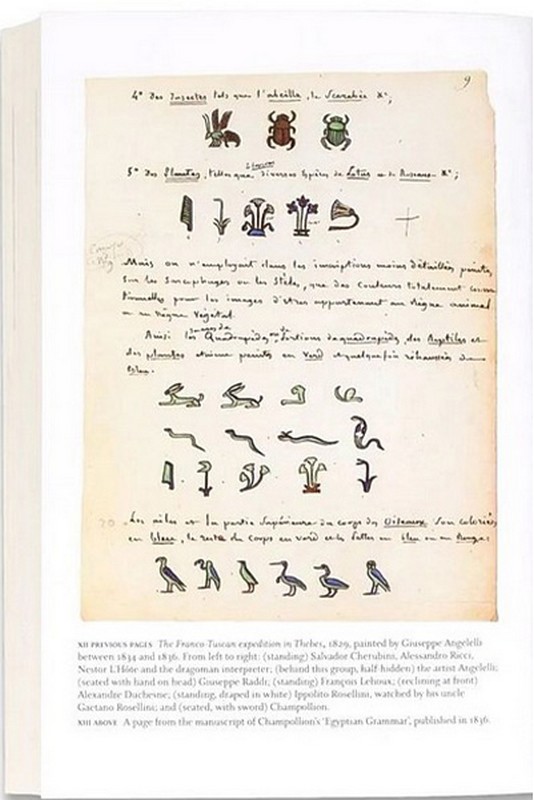 9
4° Des Insectes tels que l'abeille, le Scarabée &c;
5° Des Plantes, telles que diverses espèces de Lotus ou de Roseaux &c;
Mais on n'employait dans les inscriptions moins détaillées peintes
sur les Sarcophages ou les Stèles, que des Couleurs totalement
pour les images d'êtres appartenant au règne animal
ou au règne végétal.
Ainsi les Quadrupèdes, portions de quadrupèdes, des Reptiles et
des plantes étaient peints en Verd et quelquefois réhaussés de
bleu.
20 Les ailes et la partie Supérieure du corps des Oiseaux Son coloriées
en bleu, le reste du Corps en verd et les pattes en bleu ou en Rouge:
XII PREVIOUS PAGES The Franco-Tuscan expedition in Thebes, 1829, painted by Giuseppe Angelelli
between 1834 and 1836. From left to right: (standing) Salvador Cherubini, Alessandro Ricci,
Nestor L'Hôte and the dragoman interpreter; (behind this group, half-hidden) the artist Angelelli;
(seated with hand on head) Giuseppe Raddi; (standing) François Lehoux; (reclining at front)
Alexandre Duchesne; (standing, draped in white) Ippolito Rosellini, watched by his uncle
Gaetano Rosellini; and (seated, with sword) Champollion.
XIII ABOVE A page from the manuscript of Champollion's 'Egyptian Grammar', published in 1836.